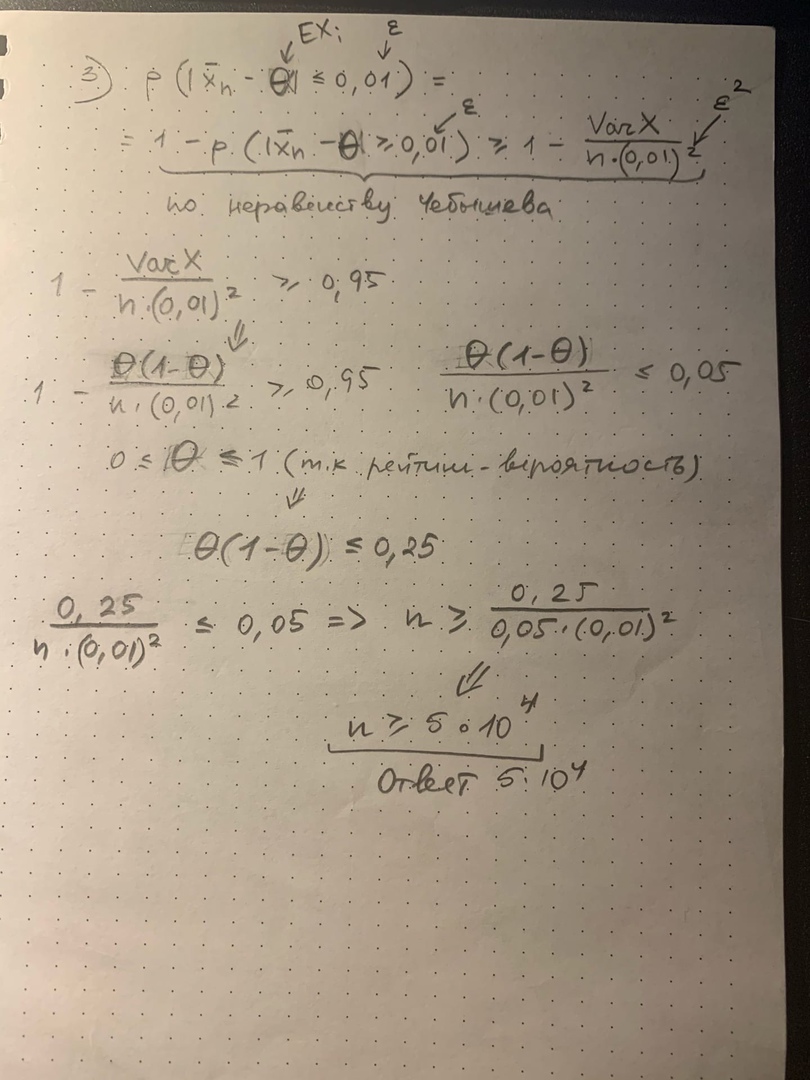 EXi ε
3) P(|x̄n - θ| ≤ 0,01) =
ε ε²
= 1 - P(|x̄n - θ| ≥ 0,01) ≥ 1 - VarX / n·(0,01)²
по неравенству Чебышева
1 - VarX / n·(0,01)² ≥ 0,95
⇓
1 - θ(1-θ) / n·(0,01)² ≥ 0,95 θ(1-θ) / n·(0,01)² ≤ 0,05
0 ≤ θ ≤ 1 (т.к рейтинг-вероятность)
⇓
θ(1-θ) ≤ 0,25
0,25 / n·(0,01)² ≤ 0,05 => n ≥ 0,25 / 0,05·(0,01)²
⇓
n ≥ 5·10⁴
Ответ 5·10⁴